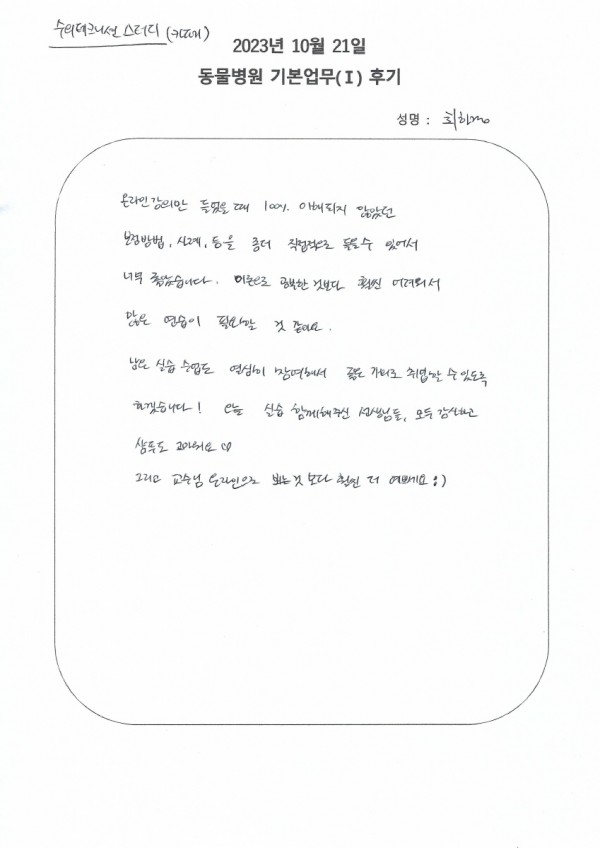 수의테크니션 스터디 (카페)
2023년 10월 21일
동물병원 기본업무(I) 후기
성명 : 최하mo
온라인강의만 들었을 때 100% 이해되지 않았던
보정방법, 신체, 등을 좀더 직접적으로 들을수 있어서
너무 좋았습니다. 이론으로 공부한 것보다 훨씬 어려워서
많은 연습이 필요할 것 같아요.
남은 실습 수업도 열심히 참여해서 좋은 가서 취업할 수 있도록
하겠습니다! 오늘 실습 함께해주신 선생님들, 모두 감사하고
상푸도 고마워요 ♡
그리고 교수님 온라인으로 보는것 보다 훨씬 더 예쁘세요 :)